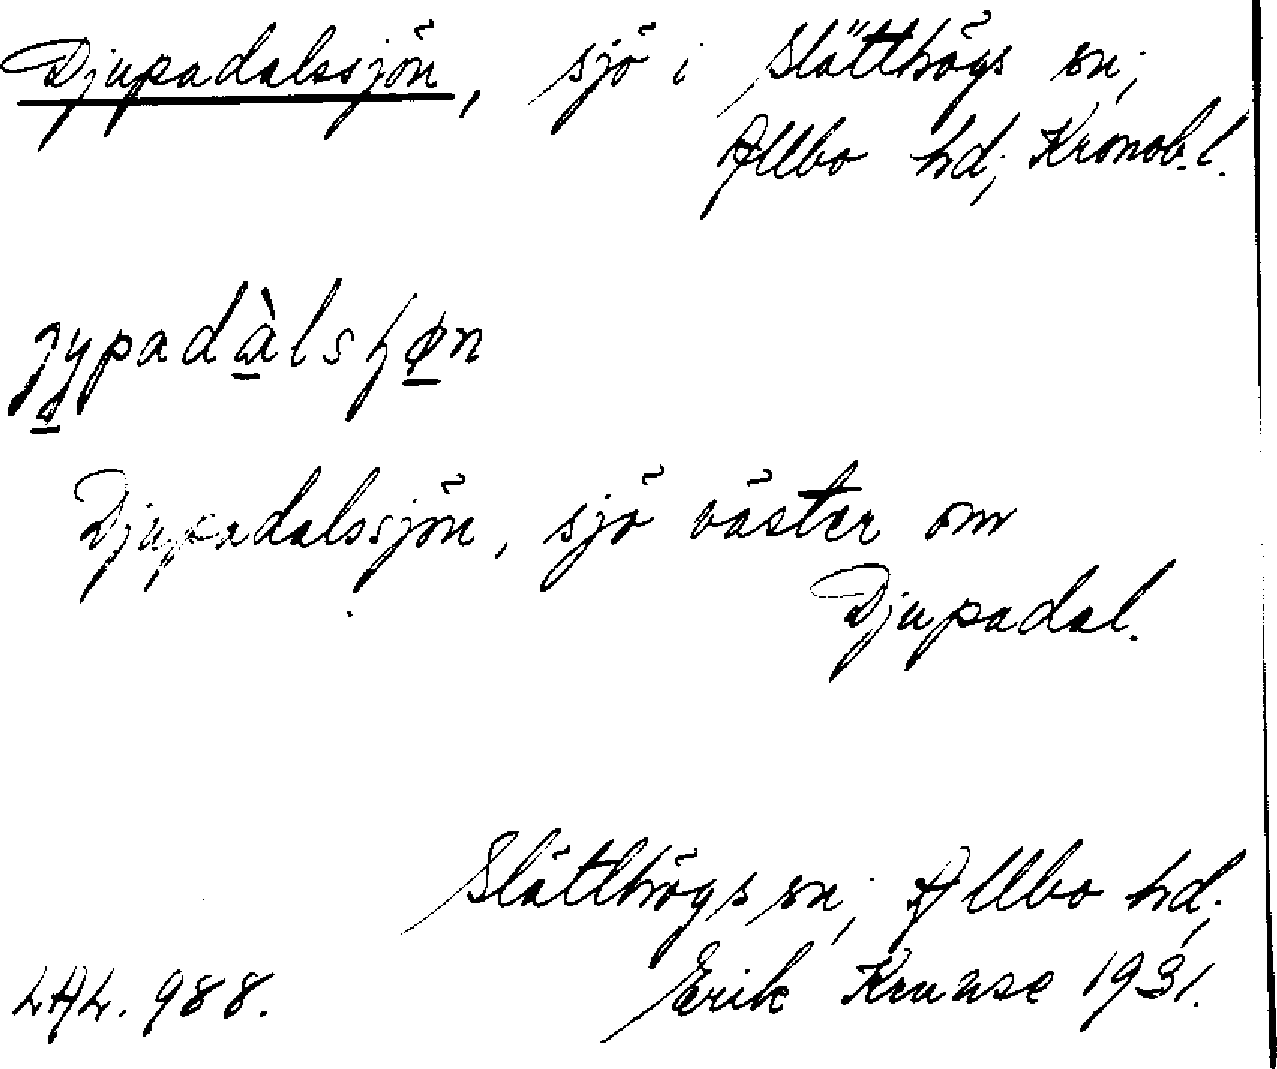 Djupadalssjön, sjö i Slätthögs sn;
Allbo hd; Kronob. l.
Djupadalssjön, sjö väster om
Djupadal.
Slätthögs sn; Allbo hd;
LAL. 988. Erik Kruuse 1931.